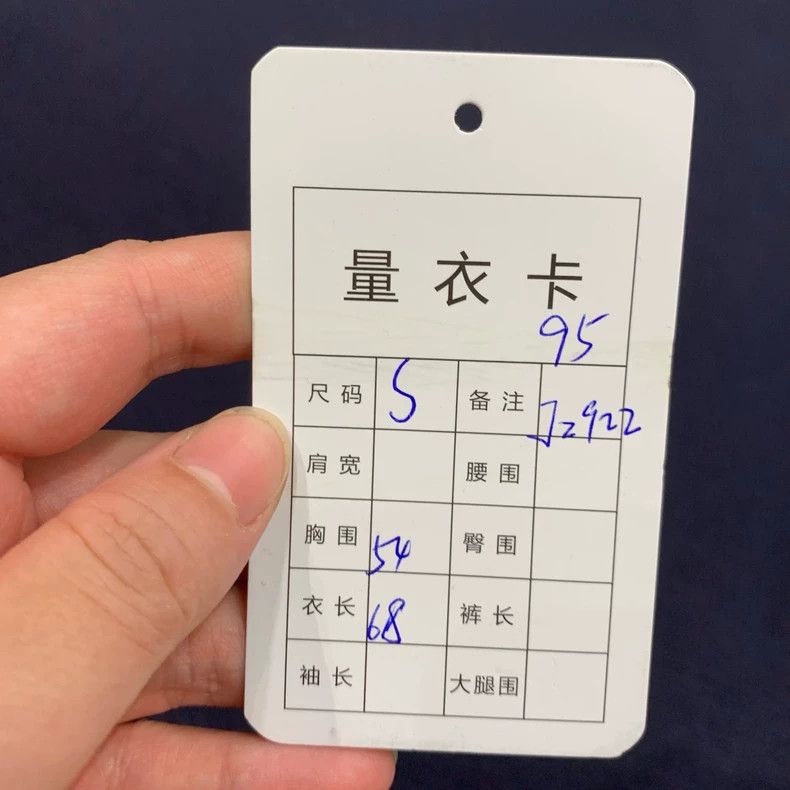 量衣卡
95
尺码 S 备注 Jz922
肩宽 腰围
胸围 54 臀围
衣长 68 裤长
袖长 大腿围